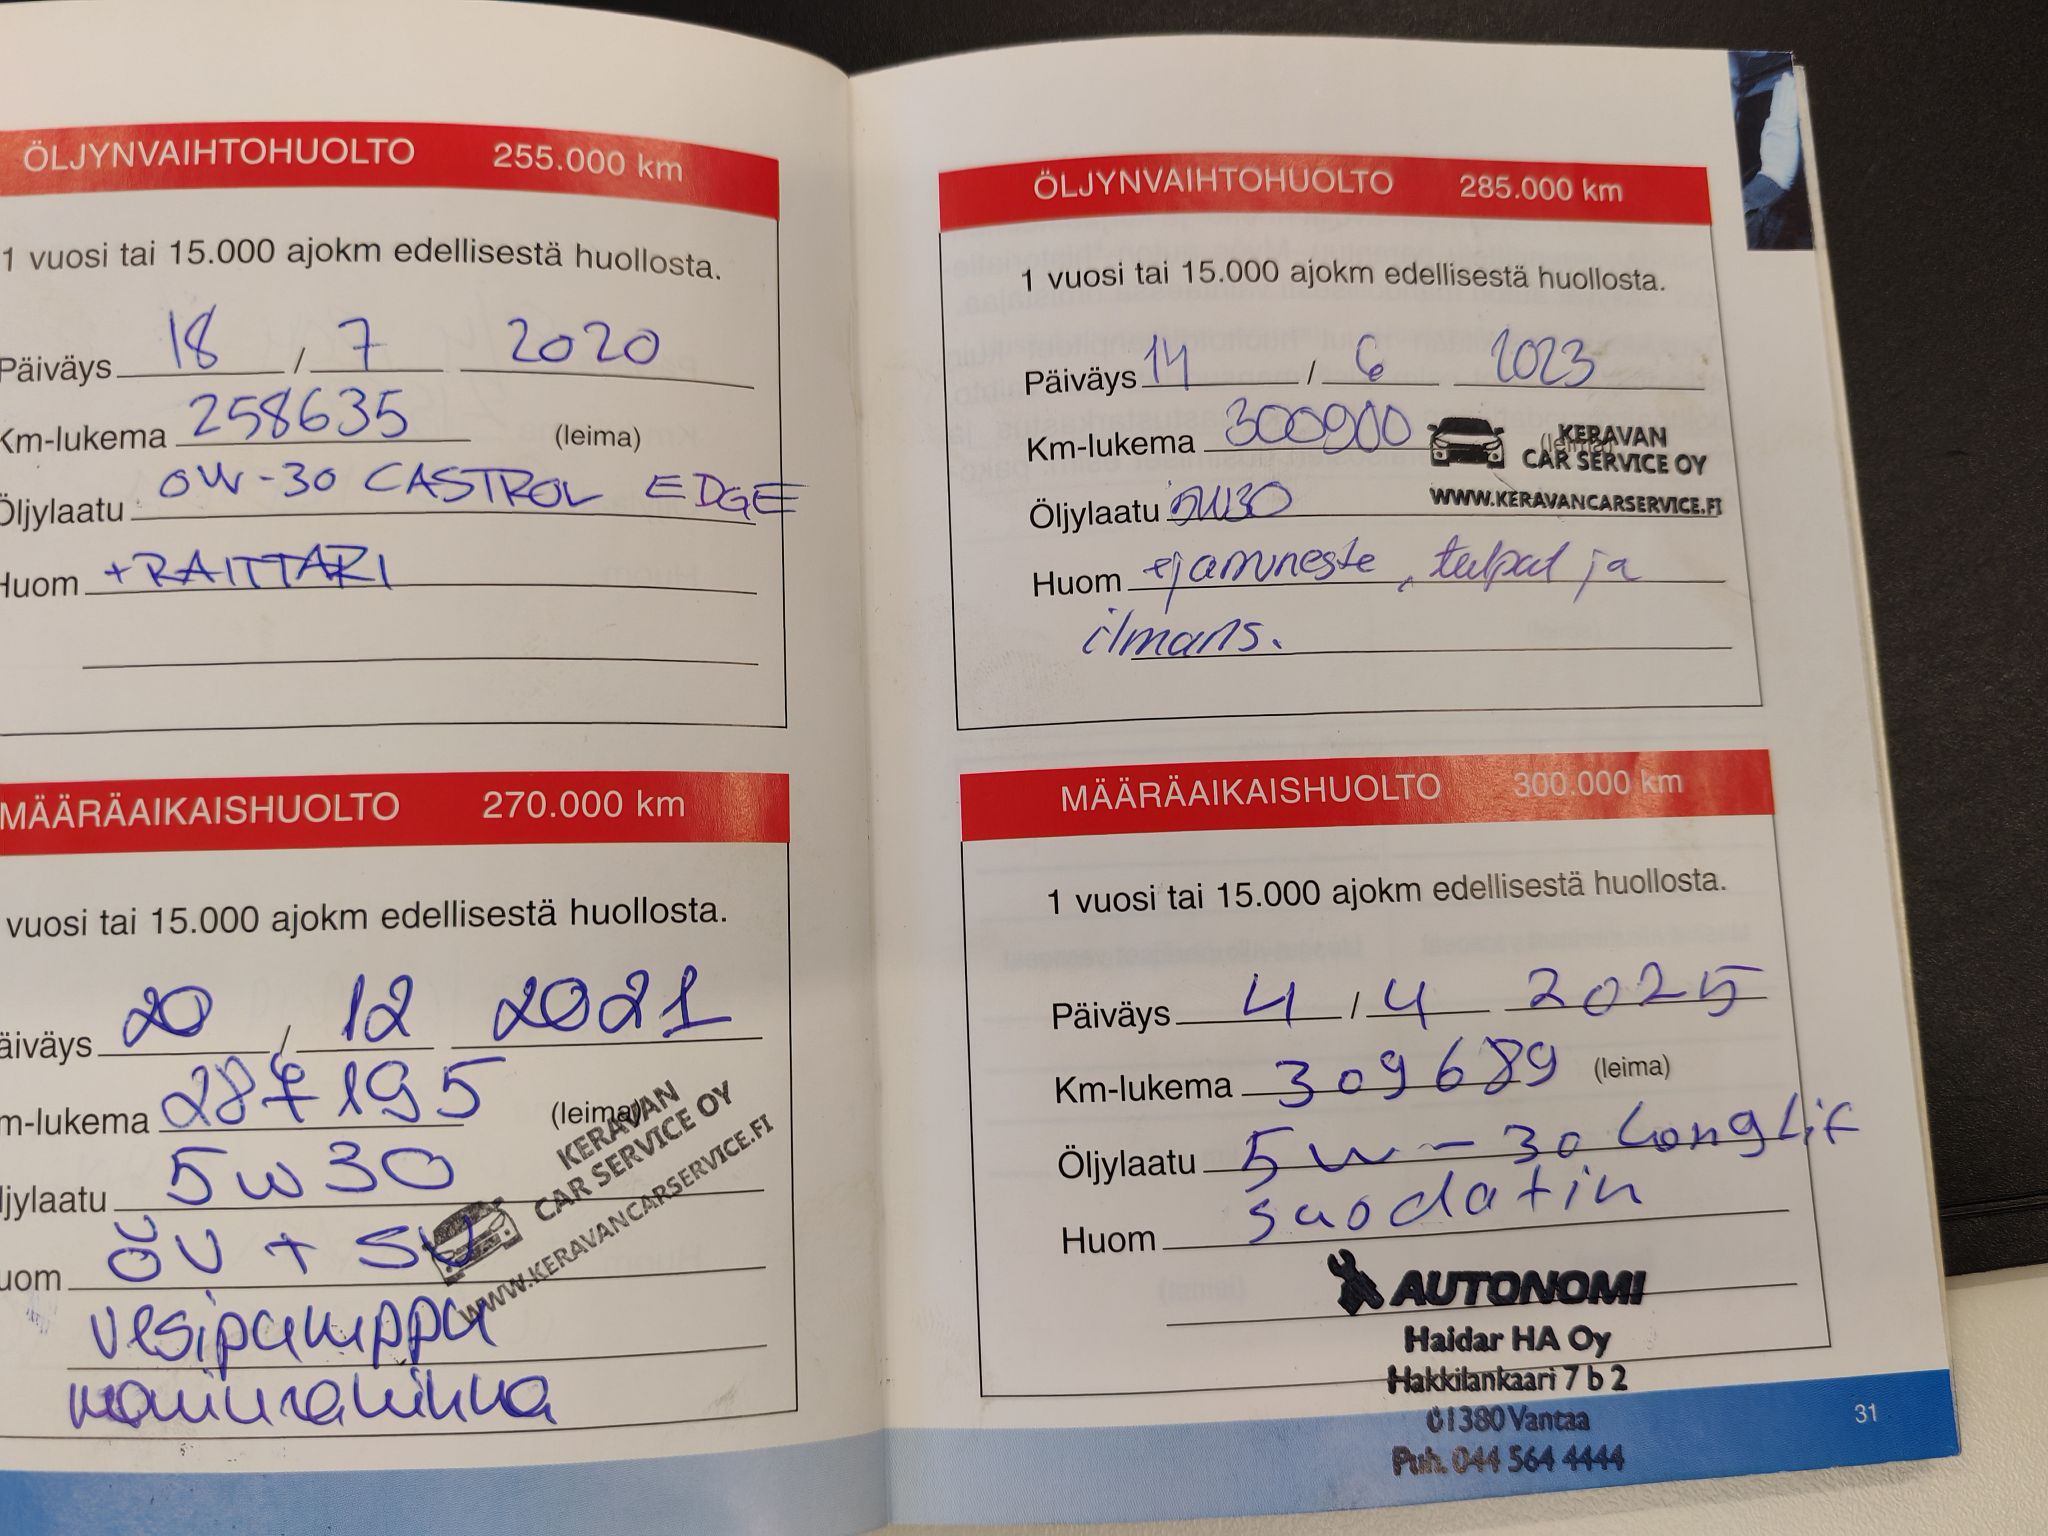 ÖLJYNVAIHTOHUOLTO 255.000 km
1 vuosi tai 15.000 ajokm edellisestä huollosta.
Päiväys 18 / 7 2020
Km-lukema 258635 (leima)
Öljylaatu 0W-30 CASTROL EDGE
Huom + RAITTARI
MÄÄRÄAIKAISHUOLTO 270.000 km
vuosi tai 15.000 ajokm edellisestä huollosta.
äiväys 20 / 12 2021
m-lukema 287195 (leima)
KERAVAN
CAR SERVICE OY
WWW.KERAVANCARSERVICE.FI
ljylaatu 5W30
uom ÖV + SV
vesipumppu
ÖLJYNVAIHTOHUOLTO 285.000 km
1 vuosi tai 15.000 ajokm edellisestä huollosta.
Päiväys 14 / 6 2023
Km-lukema 300900 (leima)
KERAVAN
CAR SERVICE OY
WWW.KERAVANCARSERVICE.FI
Öljylaatu 5W30
Huom +jarruneste, tulpat ja
ilmans.
MÄÄRÄAIKAISHUOLTO 300.000 km
1 vuosi tai 15.000 ajokm edellisestä huollosta.
Päiväys 4 / 4 2025
Km-lukema 309689 (leima)
Öljylaatu 5W-30 Longlif
Huom suodatin
AUTONOMI
Haidar HA Oy
Hakkilankaari 7 b 2
01380 Vantaa
Puh. 044 564 4444
31